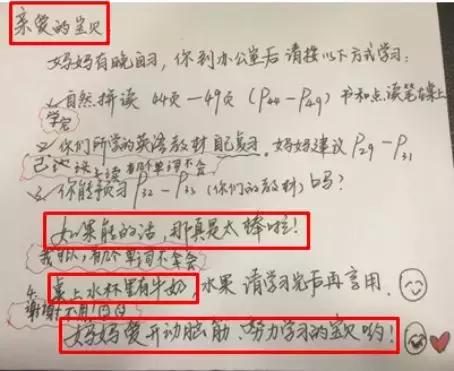 亲爱的宝贝
妈妈有晚自习,你到办公室后请按以下方式学习:
1.自然拼读 44页—49页(P44—P49)书和点读笔在桌上
学完
2.你们所学的英语教材自己复习,妈妈建议P29—P31
已读 有几个单词不会
3.你能预习P32—P33(你们的教材)吗?
如果能的话,那真是太棒啦!
我可以,有几个单词不会
4.桌上水杯里有牛奶,水果请学习完后再享用.
谢谢 不用!
妈妈爱开动脑筋、努力学习的宝贝哟!